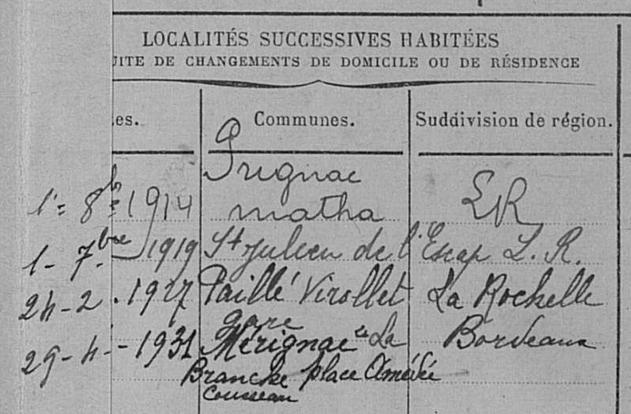 LOCALITÉS SUCCESSIVES HABITÉES
UITE DE CHANGEMENTS DE DOMICILE OU DE RÉSIDENCE
es. Communes. Suddivision de région.
Prignac
1= 8bre 1914 matha LR
1- 7bre 1919 St Julien de l'Escap L. R.
24-2.1927 Paillé Virollet La Rochelle
gare
29-4-1931 Mérignac La Bordeaux
Branche place Amédée
Cousseau